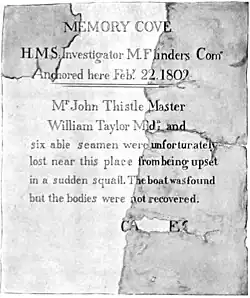 MEMORY COVE
H.M.S. Investigator M. Flinders Comr
Anchored here Feby. 22. 1802
Mr John Thistle Master
William Taylor Md. and
six able seamen were unfortunately
lost near this place from being upset
in a sudden squall. The boat was found
but the bodies were not recovered.